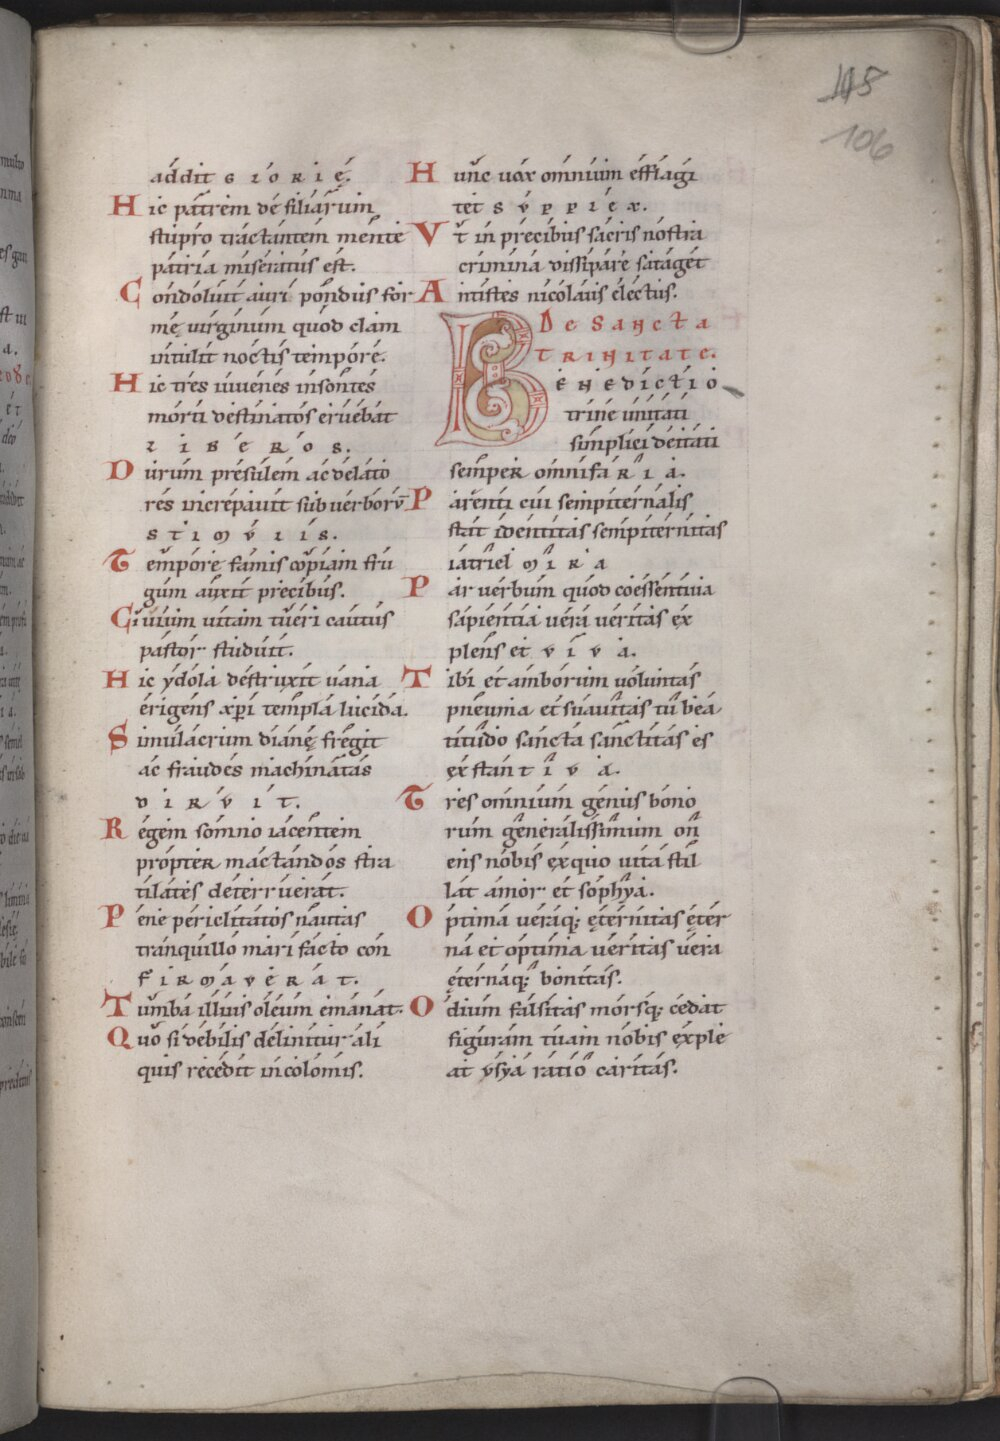 145
106
addit GLORIĘ.
Hic patrem de filiarum
stupro tractantem mente
patria miseratus est.
Condoluit auri pondus for
mę virginum quod clam
intulit noctis tempore.
Hic tres iuvenes insontes
morti destinatos eruebat
LIBEROS.
Durum presulem ac delato
res increpavit sub verborū
STIMVLIS.
Tempore famis copiam fru
gum auxit precibus.
Civium vitam tueri cautus
pastor studuit.
Hic ydola destruxit vana
erigens xpi templa lucida.
Simulacrum dianę fregit
ac fraudes machinatas
DIRVIT.
Regem somno iacentem
propter mactandos stra
tilates deterruerat.
Pene periclitatos nautas
tranquillo mari facto con
FIRMAVERAT.
Tumba illius oleum emanat.
Quo si debilis delinitur ali
quis recedit incolomis.
Hunc vox omnium efflagi
tet SVPPLEX.
Vt in precibus sacris nostra
crimina dissipare sataget
Antistes nicolaus electus.
De Sancta
TRINITATE.
BENEDICTIO
trine unitati
simplici deitati
semper omnifaRIA.
Parenti cui sempiternalis
stat identitas sempiternitas
iatriel MIRA
Par verbum quod coessentiuia
sapientia vera veritas ex
plens et VIVA.
Tibi et amborum voluntas
pneuma et suavitas tu bea
titudo sancta sanctitas es
exstanTIVA.
Tres omnium genus bono
rum generalissimum on
ens nobis ex quo vita stil
lat amor et sophya.
Optima veraq; ęternitas ęter
na et optima veritas vera
ęternaq; bonitas.
Odium falsitas morsq; cedat
figuram tuam nobis exple
at vsya ratio caritas.